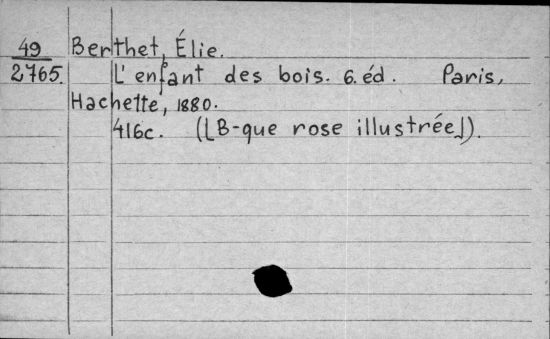 49 Berthet, Élie.
2765. L'enfant des bois. 6. éd. Paris,
Hachette, 1880.
416c. (⌊B-que rose illustrée⌋).